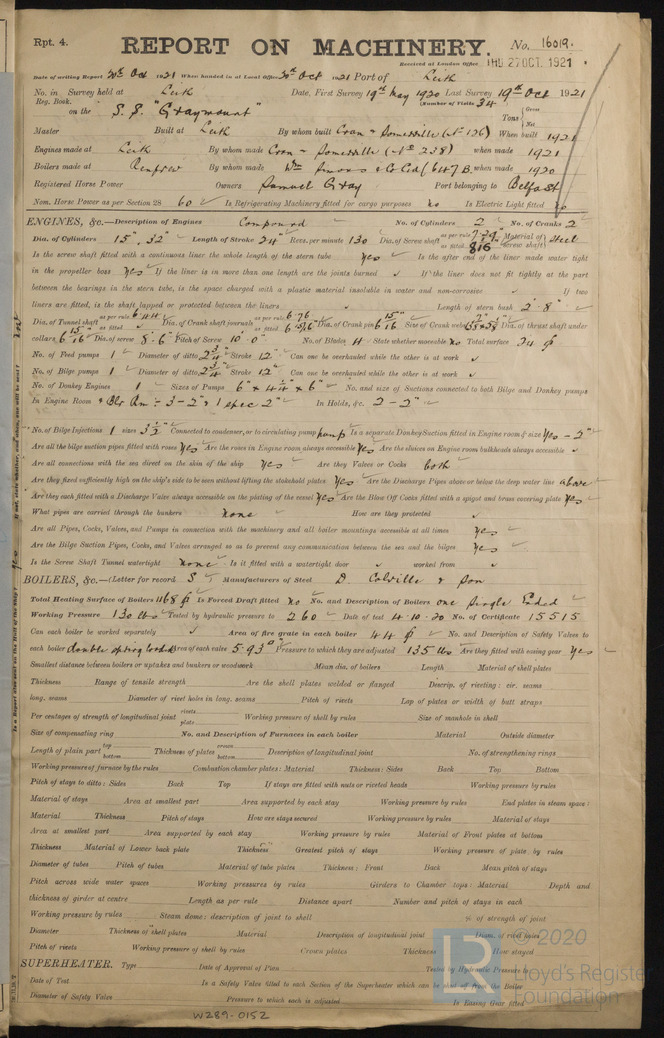 Rpt. 4.
REPORT ON MACHINERY. No. 16019.
Received at London Office THU 27 OCT. 1921
Date of writing Report 1921 When handed in at Local Office 1921 Port of Leith
No. in Survey held at Leith Date, First Survey 19th May 1920 Last Survey 19th Oct 1921
Reg. Book. (Number of Visits 34
on the S.S. "Graymount" Tons { Gross Net
Master Built at Leith By whom built Cran & Somerville (No 126) When built 1921
Engines made at Leith By whom made Cran & Somerville (No 238) when made 1921
Boilers made at Renfrew By whom made (647 B. when made 1920
Registered Horse Power Owners Samuel Gray Port belonging to Belfast
Nom. Horse Power as per Section 28 60 Is Refrigerating Machinery fitted for cargo purposes no Is Electric Light fitted no
ENGINES, &c.—Description of Engines Compound No. of Cylinders 2 No. of Cranks 2
Dia. of Cylinders 15", 32" Length of Stroke 24" Revs. per minute 130 Dia. of Screw shaft as per rule 7.29" as fitted 8 1/16 Material of screw shaft steel
Is the screw shaft fitted with a continuous liner the whole length of the stern tube Yes Is the after end of the liner made water tight
in the propeller boss yes If the liner is in more than one length are the joints burned If the liner does not fit tightly at the part
between the bearings in the stern tube, is the space charged with a plastic material insoluble in water and non-corrosive If two
liners are fitted, is the shaft lapped or protected between the liners Length of stern bush 2'-8"
Dia. of Tunnel shaft as per rule 6.44 as fitted 6 15/16 Dia. of Crank shaft journals as per rule 6.76 as fitted 6 15/16 Dia. of Crank pin 6 15/16 Size of Crank webs Dia. of thrust shaft under
collars 6 15/16 Dia. of screw 8'.6" Pitch of Screw 10'.0" No. of Blades 4 State whether moveable no Total surface 24
No. of Feed pumps 1 Diameter of ditto 2 3/4 Stroke 12" Can one be overhauled while the other is at work
No. of Bilge pumps 1 Diameter of ditto 2 3/4 Stroke 12" Can one be overhauled while the other is at work
No. of Donkey Engines 1 Sizes of Pumps No. and size of Suctions connected to both Bilge and Donkey pumps
In Engine Room In Holds, &c. 2-2"
No. of Bilge Injections 1 sizes 3 1/2 Connected to condenser, or to circulating pump pump Is a separate Donkey Suction fitted in Engine room & size yes - 2"
Are all the bilge suction pipes fitted with roses yes Are the roses in Engine room always accessible yes Are the sluices on Engine room bulkheads always accessible
Are all connections with the sea direct on the skin of the ship yes Are they Valves or Cocks both
Are they fixed sufficiently high on the ship's side to be seen without lifting the stokehold plates yes Are the Discharge Pipes above or below the deep water line above
Are they each fitted with a Discharge Valve always accessible on the plating of the vessel yes Are the Blow Off Cocks fitted with a spigot and brass covering plate yes
What pipes are carried through the bunkers none How are they protected
Are all Pipes, Cocks, Valves, and Pumps in connection with the machinery and all boiler mountings accessible at all times yes
Are the Bilge Suction Pipes, Cocks, and Valves arranged so as to prevent any communication between the sea and the bilges yes
Is the Screw Shaft Tunnel watertight none Is it fitted with a watertight door worked from
BOILERS, &c.—(Letter for record S) Manufacturers of Steel D. Colville & Son
Total Heating Surface of Boilers 1168 Is Forced Draft fitted no No. and Description of Boilers one Single Ended
Working Pressure 130 lbs Tested by hydraulic pressure to 260 Date of test 4-10-20 No. of Certificate 15515
Can each boiler be worked separately Area of fire grate in each boiler 44 No. and Description of Safety Valves to
each boiler double spring loaded Area of each valve 5.93 Pressure to which they are adjusted 135 lbs Are they fitted with easing gear yes
Smallest distance between boilers or uptakes and bunkers or woodwork Mean dia. of boilers Length Material of shell plates
Thickness Range of tensile strength Are the shell plates welded or flanged Descrip. of riveting: cir. seams
long. seams Diameter of rivet holes in long. seams Pitch of rivets Lap of plates or width of butt straps
Per centages of strength of longitudinal joint rivets plate Working pressure of shell by rules Size of manhole in shell
Size of compensating ring No. and Description of Furnaces in each boiler Material Outside diameter
Length of plain part top bottom Thickness of plates crown bottom Description of longitudinal joint No. of strengthening rings
Working pressure of furnace by the rules Combustion chamber plates: Material Thickness: Sides Back Top Bottom
Pitch of stays to ditto: Sides Back Top If stays are fitted with nuts or riveted heads Working pressure by rules
Material of stays Area at smallest part Area supported by each stay Working pressure by rules End plates in steam space:
Material Thickness Pitch of stays How are stays secured Working pressure by rules Material of stays
Area at smallest part Area supported by each stay Working pressure by rules Material of Front plates at bottom
Thickness Material of Lower back plate Thickness Greatest pitch of stays Working pressure of plate by rules
Diameter of tubes Pitch of tubes Material of tube plates Thickness: Front Back Mean pitch of stays
Pitch across wide water spaces Working pressures by rules Girders to Chamber tops: Material Depth and
thickness of girder at centre Length as per rule Distance apart Number and pitch of stays in each
Working pressure by rules Steam dome: description of joint to shell % of strength of joint
Diameter Thickness of shell plates Material Description of longitudinal joint Diam. of rivet holes
Pitch of rivets Working pressure of shell by rules Crown plates Thickness How stayed
SUPERHEATER. Type Date of Approval of Plan Tested by Hydraulic Pressure to
Date of Test Is a Safety Valve fitted to each Section of the Superheater which can be shut off from the Boiler
Diameter of Safety Valve Pressure to which each is adjusted Is Easing Gear fitted
W289-0152
LR © 2020
Lloyd's Register
Foundation